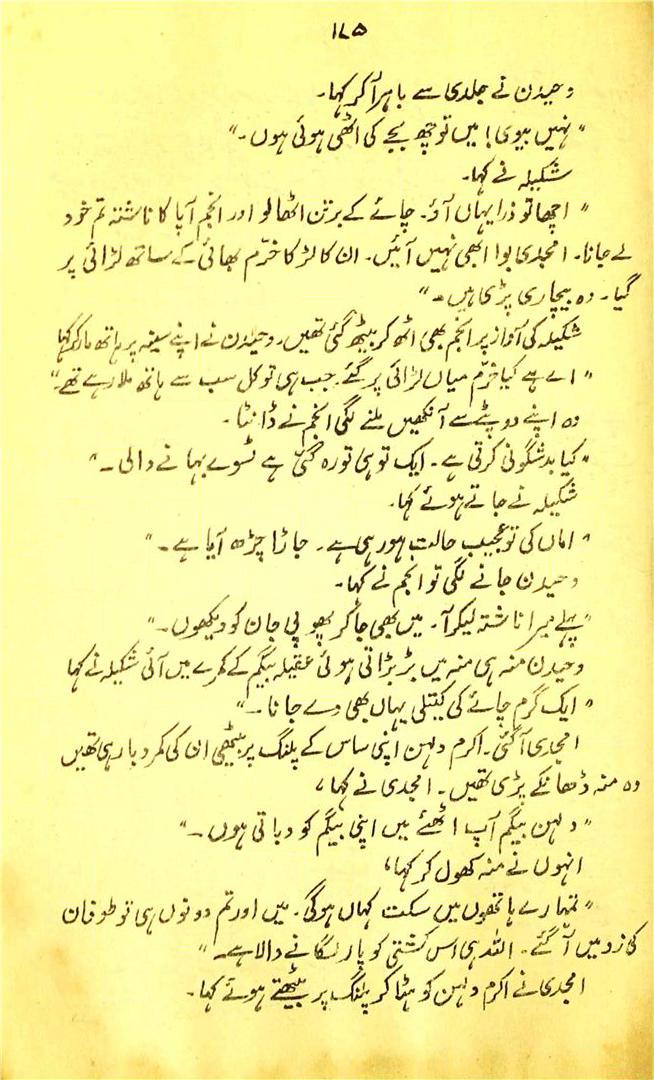 ۱۷۵
وحیدن نے جلدی سے باہر آ کر کہا۔
" نہیں بیوی! میں تو چھ بجے کی اٹھی ہوئی ہوں۔"
شکیلہ نے کہا۔
" اچھا تو ذرا یہاں آؤ۔ چائے کے برتن اٹھا لو اور انجم آپا کا ناشتہ تم خود
لے جانا۔ امجدی بوا ابھی نہیں آئیں۔ ان کا لڑکا خرّم بھائی کے ساتھ لڑائی پر
گیا۔ وہ بیچاری پڑی ہیں۔"
شکیلہ کی آواز پر انجم بھی اٹھ کر بیٹھ گئی تھیں۔ وحیدن نے اپنے سینہ پر ہاتھ مار کر کہا
" اے ہے کیا خرّم میاں لڑائی پر گئے۔ جب ہی تو کل سب سے ہاتھ ملا رہے تھے۔"
وہ اپنے دوپٹے سے آنکھیں ملنے لگی انجم نے ڈانٹا۔
" کیا بدشگونی کرتی ہے۔ ایک تو ہی تو رہ گئی ہے ٹسوے بہانے والی۔"
شکیلہ نے جاتے ہوئے کہا۔
" اماں کی تو عجیب حالت ہو رہی ہے۔ جاڑا چڑھ آیا ہے۔"
وحیدن جانے لگی تو انجم نے کہا۔
" پہلے میرا ناشتہ لیکر آ۔ میں بھی جا کر پھوپی جان کو دیکھوں۔"
وحیدن منہ ہی منہ میں بڑبڑاتی ہوئی عقیلہ بیگم کے کمرے میں آئی شکیلہ نے کہا
" ایک گرم چائے کی کیتلی یہاں بھی دے جانا۔"
امجدی آ گئی۔ اکرم دلہن اپنی ساس کے پلنگ پر بیٹھی ان کی کمر دبا رہی تھیں
وہ منہ ڈھانکے پڑی تھیں۔ امجدی نے کہا،
" دلہن بیگم آپ اٹھئے میں اپنی بیگم کو دباتی ہوں۔"
انہوں نے منہ کھول کر کہا،
" تمہارے ہاتھوں میں سکت کہاں ہوگی۔ میں اور تم دونوں ہی تو طوفان
کی زد میں آ گئے۔ اللہ ہی اس کشتی کو پار لگانے والا ہے۔"
امجدی نے اکرم دلہن کو ہٹا کر پلنگ پر بیٹھتے ہوئے کہا۔